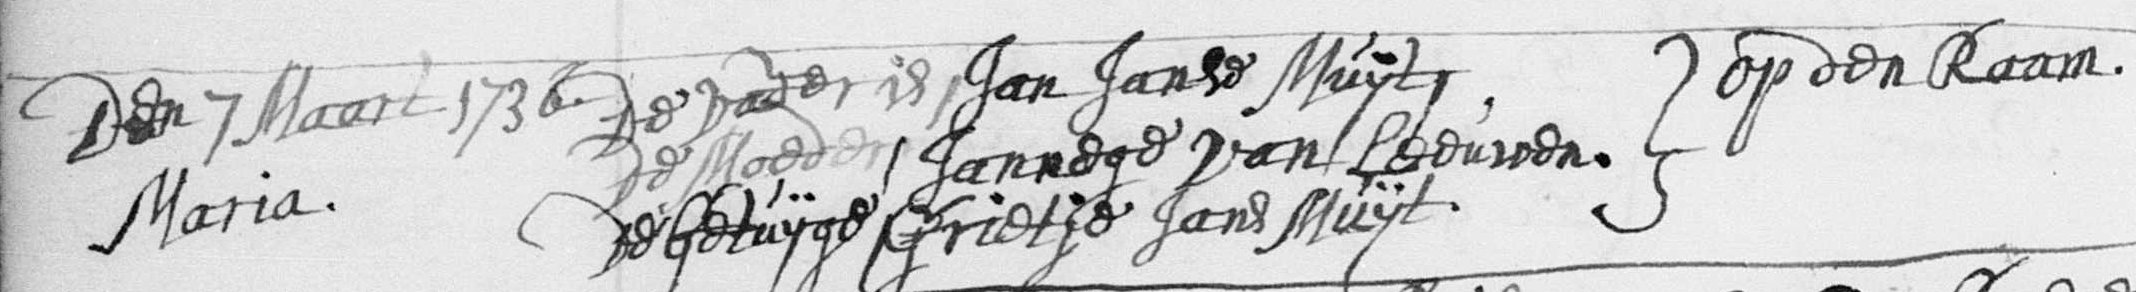 Den 7 Maart 1736. De Vader is, Jan Janse Müÿt, } op den Raam.
Maria. De Moeder, Jannege van Leeuwen.
De getüÿge, Grietje Jans Müÿt.